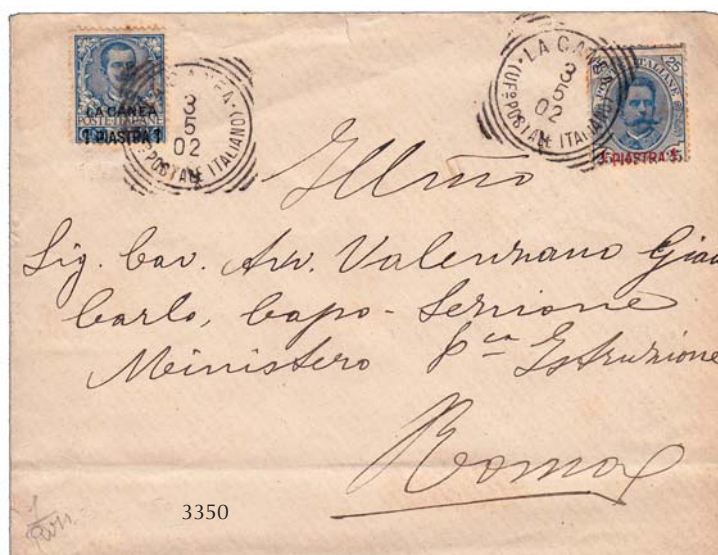 LA CANEA
POSTE ITALIANE
1 PIASTRA 1
3
5
02
POSTALE ITALIANO
LA CANEA
(UFO POSTALE ITALIANO)
3
5
02
25
ITALIANE
1 PIASTRA 1
Illmo
Sig. Cav. Avv. Valenzano Gian
Carlo, Capo-Sezione
Ministero P.ca Istruzione
Roma
3350